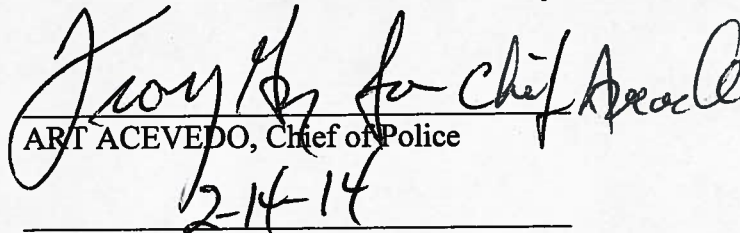 Troy Gay for Chief Acevedo
ART ACEVEDO, Chief of Police
2-14-14